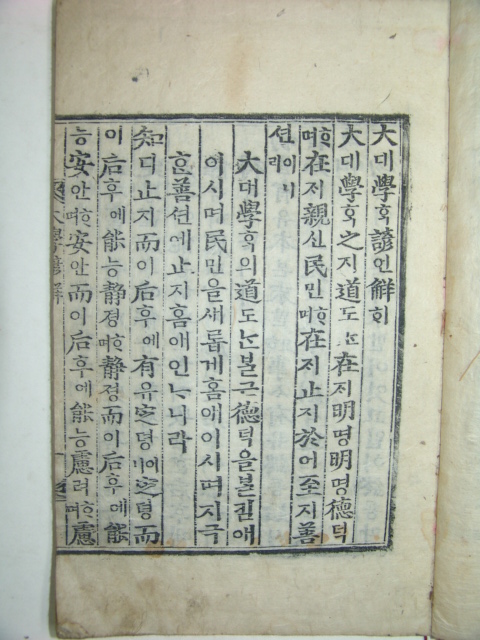 大대學학諺언解ᄒᆡ
大대學학之지道도ᄂᆞᆫ在ᄌᆡ明명明명德덕
ᄒᆞ며在ᄌᆡ親신民민ᄒᆞ며在ᄌᆡ止지於어至지善
션이니라
大대學학의道도ᄂᆞᆫ불근德덕을불킴애
이시며民민을새롭게홈애이시며지극
ᄒᆞᆫ善션에止지홈애인ᄂᆞ니라
知디止지而이后후에有유定뎡이니定뎡而
이后후에能능静졍ᄒᆞ며静졍而이后후에能
능安안ᄒᆞ며安안而이后후에能능慮려ᄒᆞ며慮
大學諺解